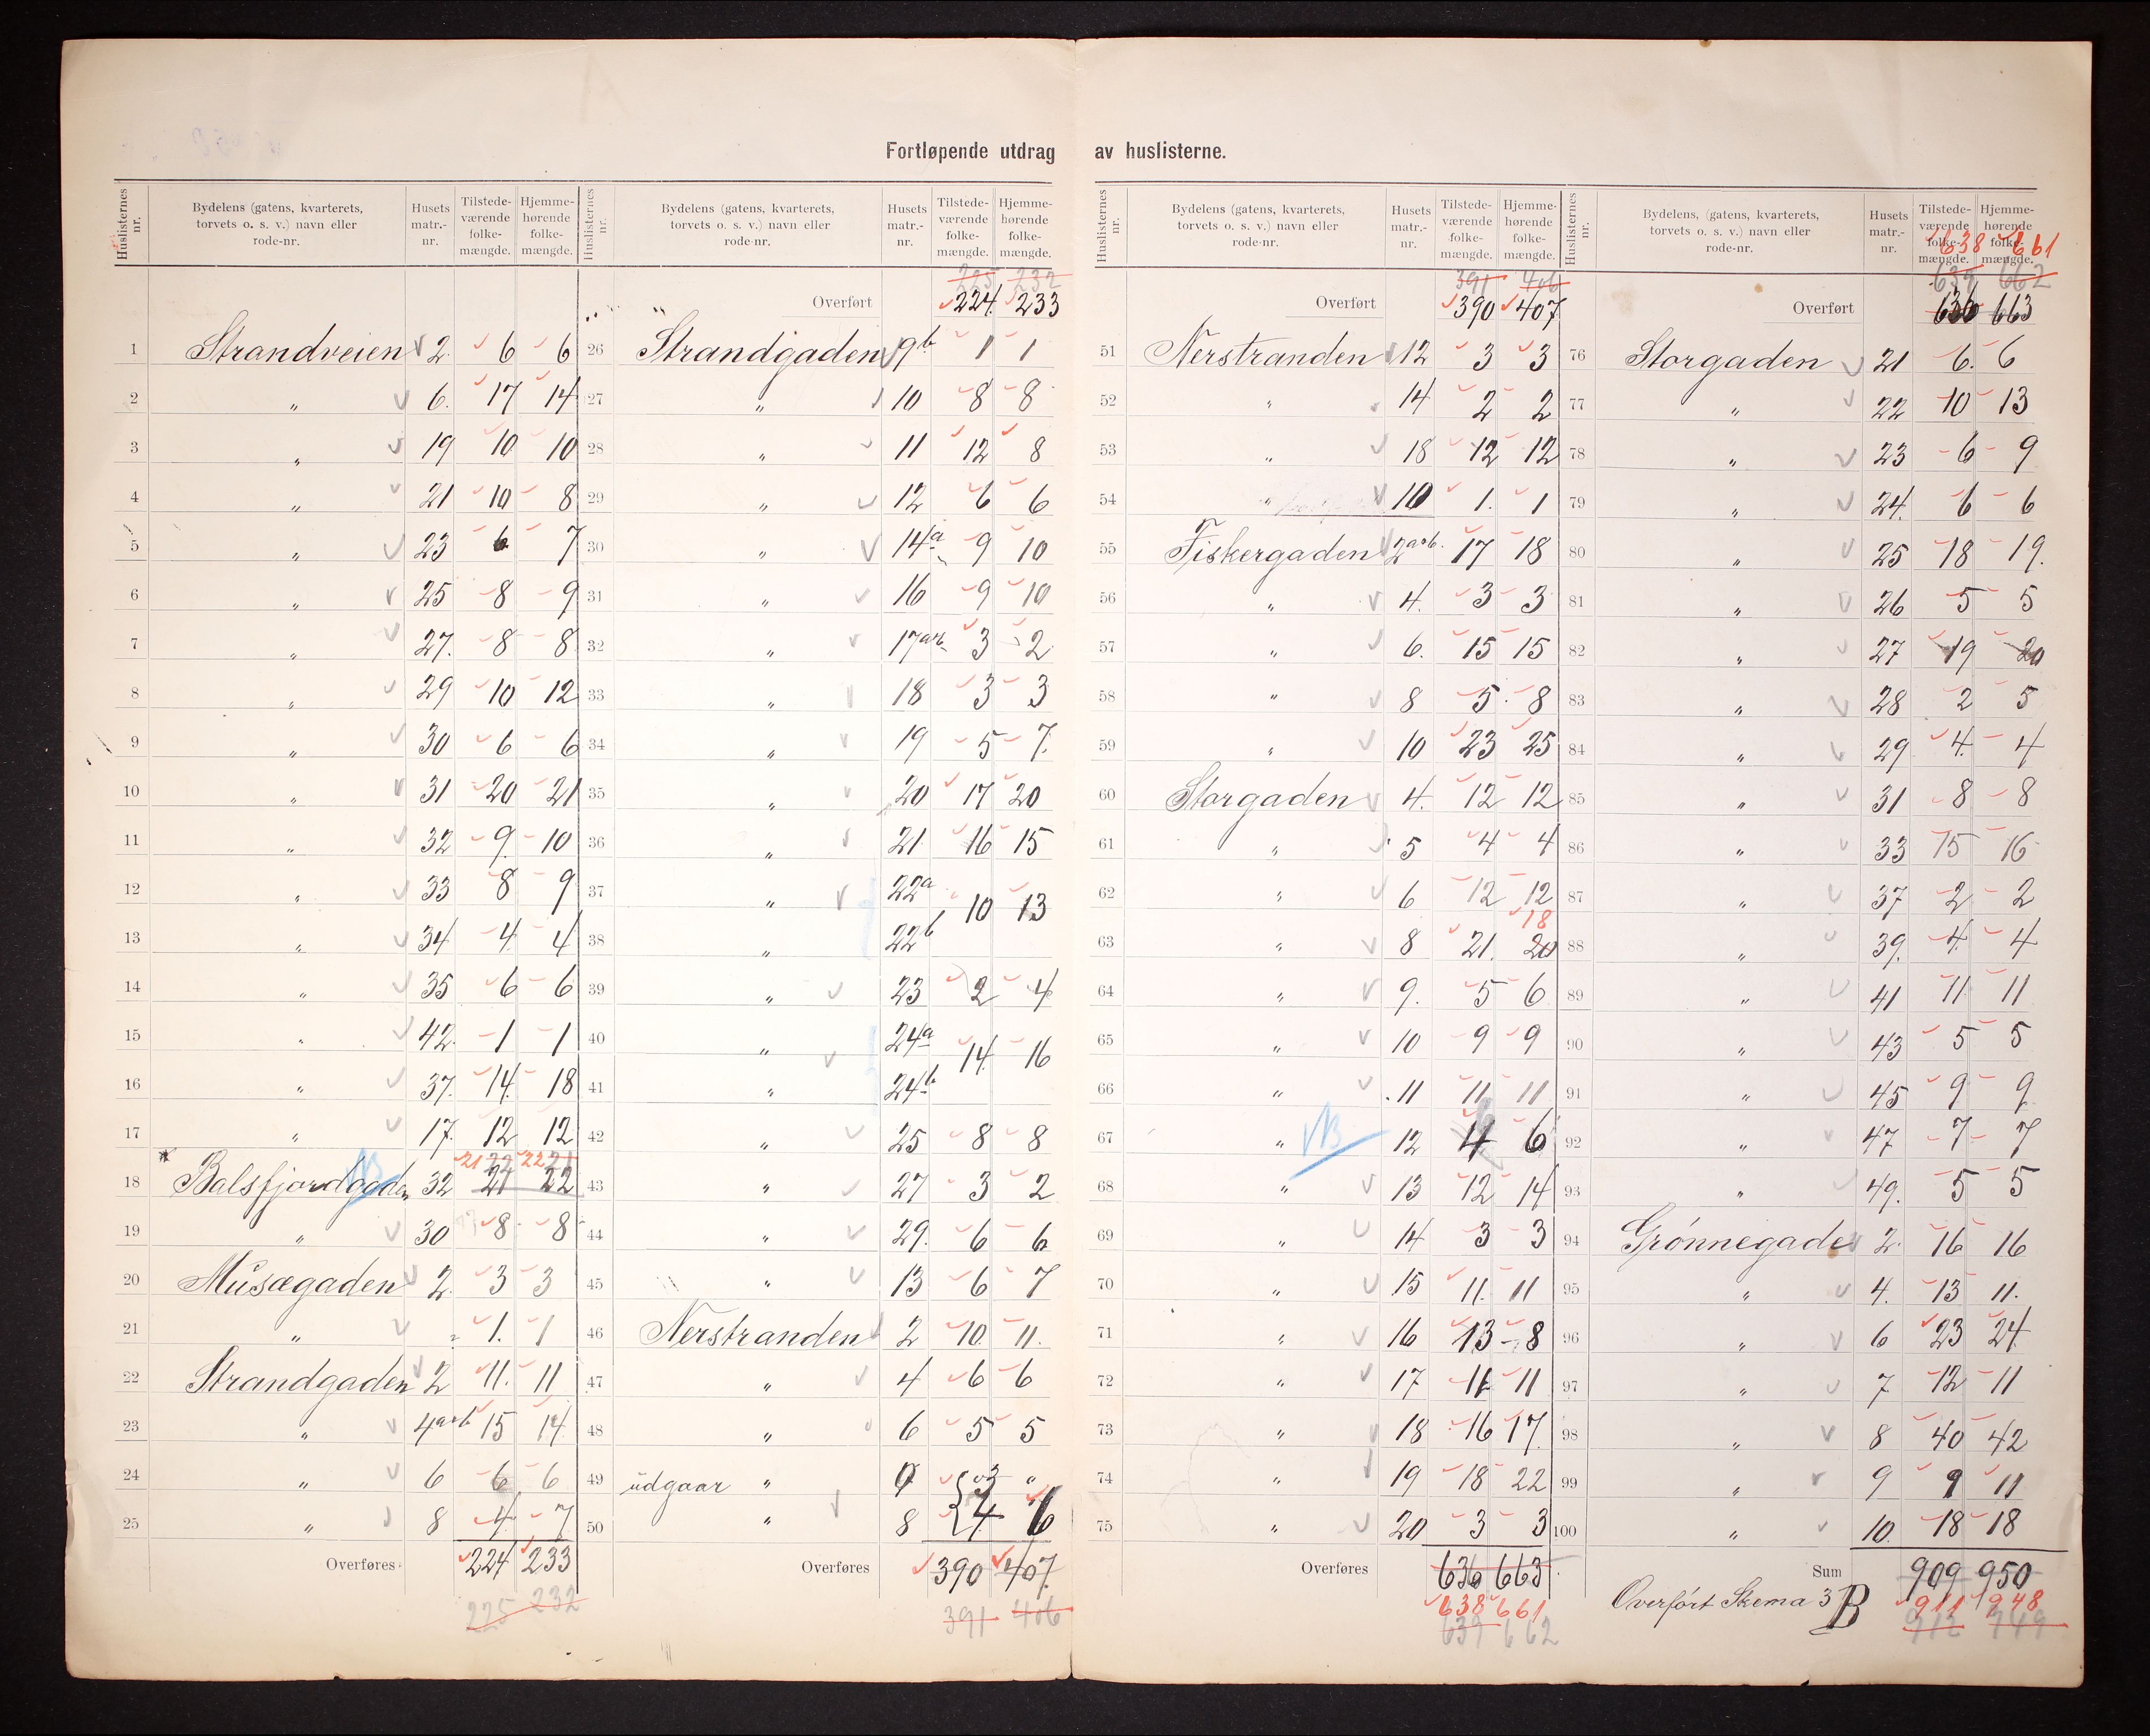 Fortløpende utdrag av huslisterne.
Huslisternes nr. | Bydelens (gatens, kvarterets, torvets o. s. v.) navn eller rode-nr. | Husets matr.-nr. | Tilstede-værende folke-mængde. | Hjemme-hørende folke-mængde.
1 Strandveien 2. 6 6
2 " 6. 17 14
3 " 19 10 10
4 " 21 10 8
5 " 23 6 7
6 " 25 8 9
7 " 27. 8 8
8 " 29 10 12
9 " 30 6 6
10 " 31 20 21
11 " 32 9. 10
12 " 33 8 9
13 " 34 4. 4
14 " 35 6 6
15 " 42. 1 1
16 " 37. 14. 18
17 " 17. 12 12
21 22 22 21
18 Balsfjordgaden NB 32 21 22
19 " 30 8 8
20 Musægaden 2. 3 3
21 " " 1. 1
22 Strandgaden 2 11. 11
23 " 4a&b 15 14
24 " 6 6 6
25 " 8 4 7
Overføres 224 233
225 232
Huslisternes nr. | Bydelens (gatens, kvarterets, torvets o. s. v.) navn eller rode-nr. | Husets matr.-nr. | Tilstede-værende folke-mængde. | Hjemme-hørende folke-mængde.
225 232
Overført 224. 233
26 Strandgaden 9b. 1 1
27 " 10 8 8
28 " 11 12 8
29 " 12 6 6
30 " 14a 9 10
31 " 16 9 10
32 " 17a&b 3 2
33 " 18 3 3
34 " 19 5 7.
35 " 20 17 20
36 " 21 16 15
37 " 22a 10 13
38 " 22b
39 " 23 2 4
40 " 24a 14. 16
41 " 24b
42 " 25 8 8
43 " 27 3 2
44 " 29. 6 6
45 " 13 6 7
46 Nerstranden 2 10 11.
47 " 4 6 6
48 " 6 5 5
49 udgaar " "
50 " 8 4 6
Overføres 390 407.
391 406
Huslisternes nr. | Bydelens (gatens, kvarterets, torvets o. s. v.) navn eller rode-nr. | Husets matr.-nr. | Tilstede-værende folke-mængde. | Hjemme-hørende folke-mængde.
391 406
Overført 390 407
51 Nerstranden 12 3 3
52 " 14 2 2
53 " 18 12 12
54 " 10 1. 1
55 Fiskergaden 2a&b. 17 18
56 " 4. 3 3
57 " 6. 15 15
58 " 8 5 8
59 " 10 23 25
60 Storgaden 4. 12 12
61 " 5 4 4
62 " 6 12 12
18
63 " 8 21. 20
64 " 9. 5 6
65 " 10 9 9
66 " 11 11 11
67 " NB 12 4 6
68 " 13 12 14
69 " 14 3 3
70 " 15 11. 11
71 " 16 13 8
72 " 17 11 11
73 " 18 16 17.
74 " 19 18 22
75 " 20 3 3
Overføres 636 663
638 661
639 662
Huslisternes nr. | Bydelens, (gatens, kvarterets, torvets o. s. v.) navn eller rode-nr. | Husets matr.-nr. | Tilstede-værende folke-mængde. | Hjemme-hørende folke-mængde.
638 661
639 662
Overført 636 663
76 Storgaden 21 6. 6
77 " 22 10 13
78 " 23 6 9
79 " 24. 6 6
80 " 25 18 19.
81 " 26 5 5
82 " 27 19 20
83 " 28 2 5
84 " 29 4. 4
85 " 31 8 8
86 " 33 15 16
87 " 37 2 2
88 " 39. 4. 4
89 " 41 11 11
90 " 43 5 5
91 " 45 9 9
92 " 47 7 7
93 " 49. 5 5
94 Grönnegade 2. 16 16
95 " 4. 13 11.
96 " 6 23 24
97 " 7 12 11
98 " 8 40 42
99 " 9 9 11
100 " 10. 18 18
Sum 909 950
Overfört Skema 3 B 911 948
912 949